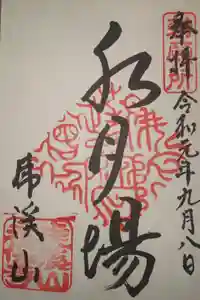 奉拝 令和元年九月八日
水月場
虎溪山